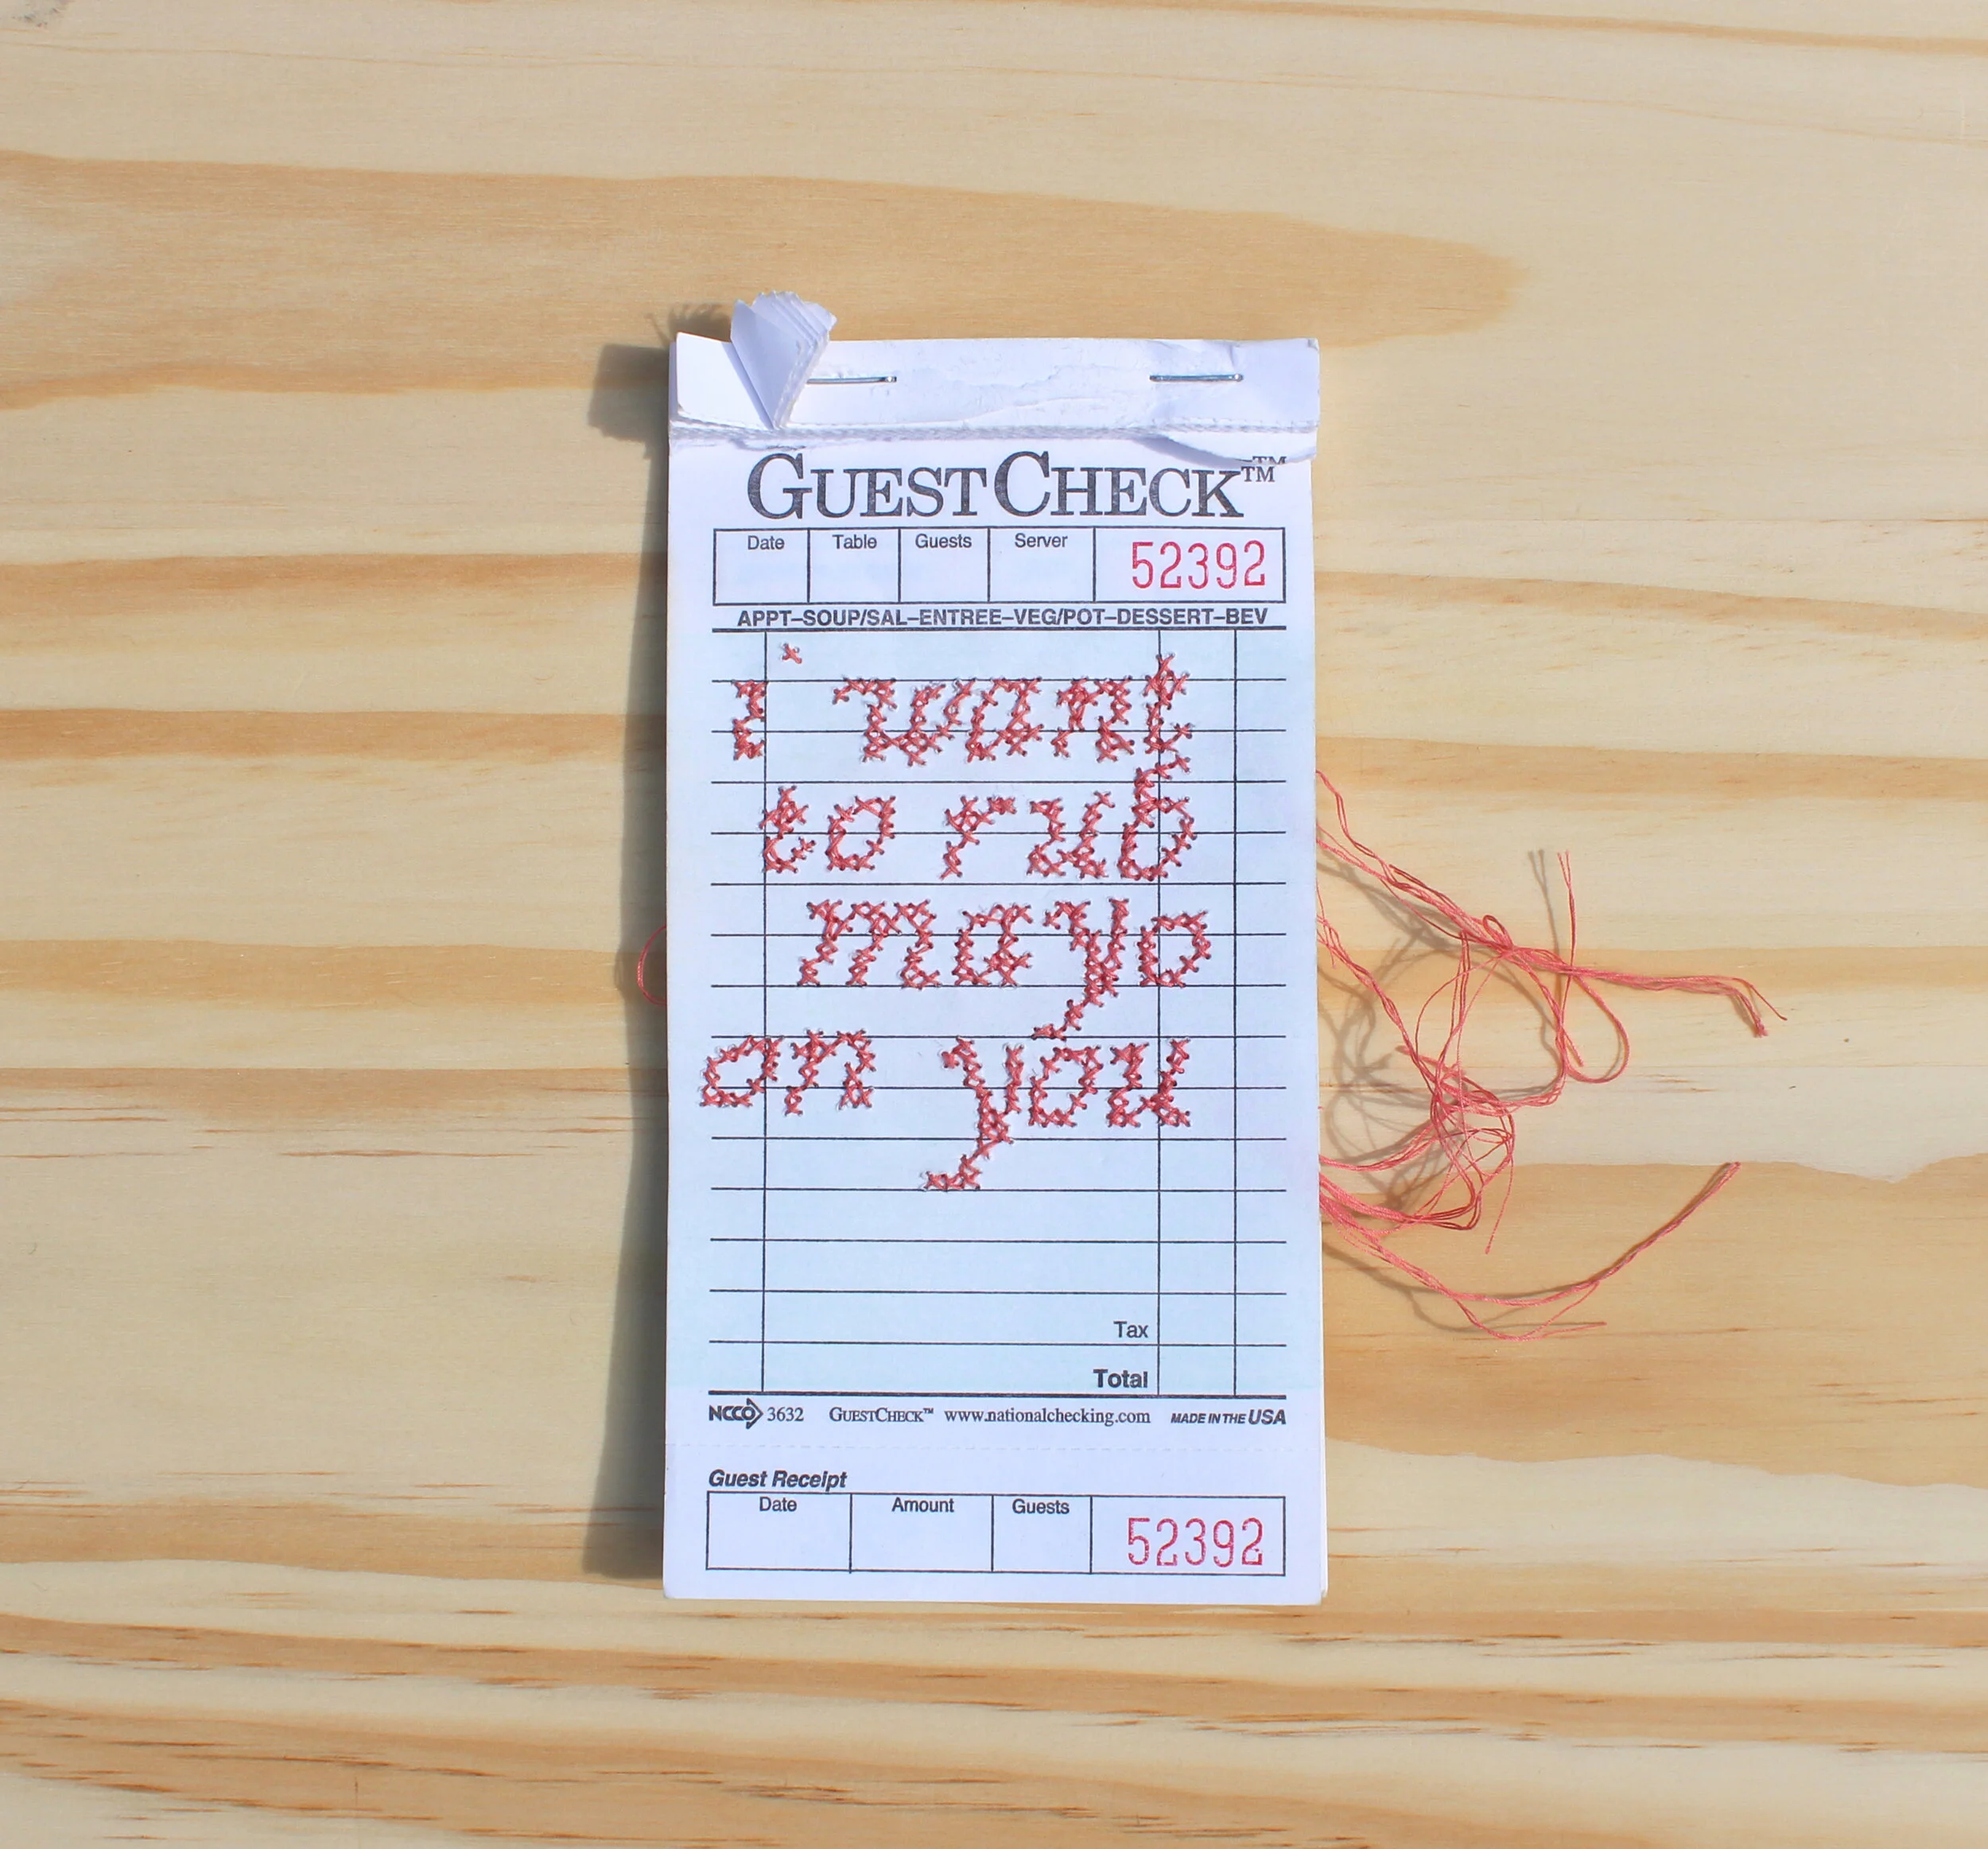 GUESTCHECK™
Date Table Guests Server 52392
APPT–SOUP/SAL–ENTREE–VEG/POT–DESSERT–BEV
i want
to rub
mayo
on you
Tax
Total
NCCO 3632 GUESTCHECK™ www.nationalchecking.com MADE IN THE USA
Guest Receipt
Date Amount Guests 52392